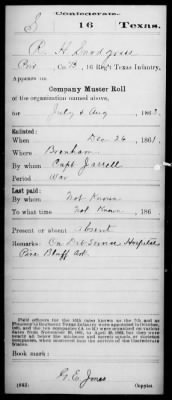 Confederate.
S 16 Texas.
R. H. Snodgrass
Pvt, Co. B, 16 Reg't Texas Infantry.
Appears on
Company Muster Roll
of the organization named above,
for July & Aug, 1863.
Enlisted:
When Dec 26, 1861.
Where Brenham
By whom Capt Jarrell
Period War
Last paid:
By whom Not Known
To what time Not Known, 186 .
Present or absent Absent
Remarks: On Det Service Hospital
Pine Bluff Ark.
Book mark:
G. E. Jones
(642) Copyist.